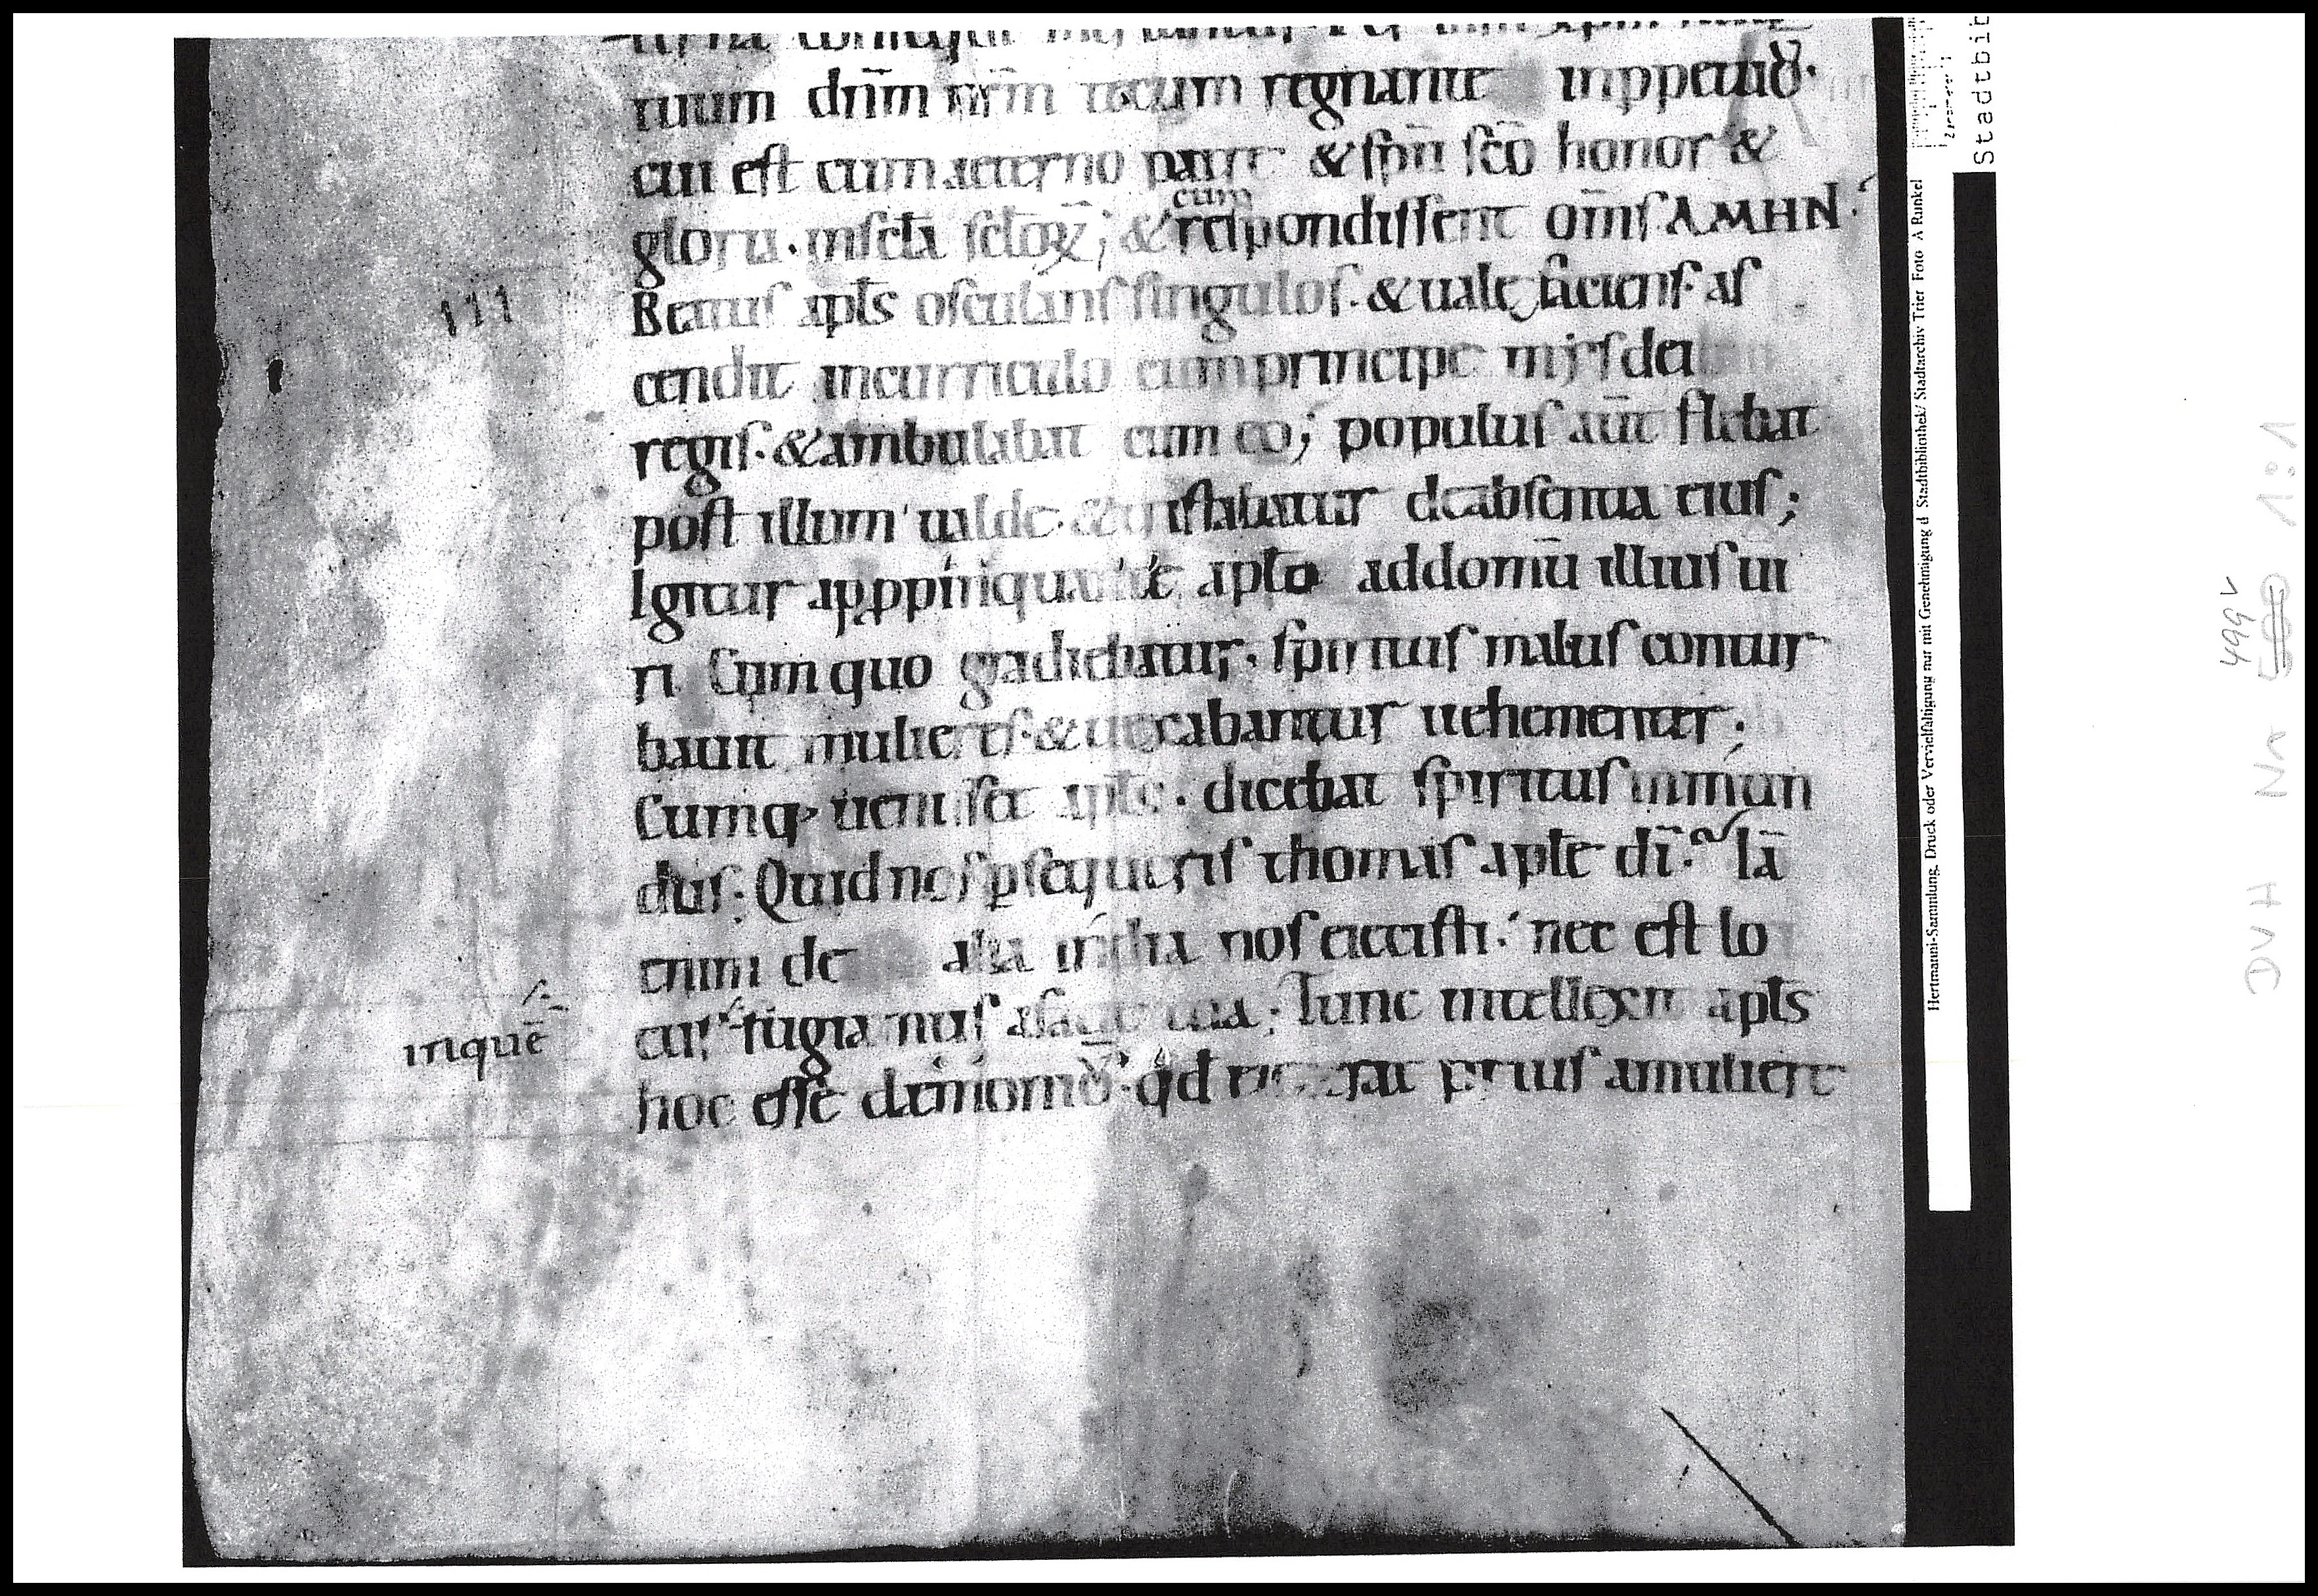 tuum dn̄m nr̄m tecum regnante inppetuū·
cui est cum aeterno patre & spū scō honor &
gloria· inscl̄a scl̄oꝝ; & cum respondissent om̄s AMHN·
III
Beatus apl̄s osculans singulos· & uale faciens· as
cendit incurriculo cum principe
regis· & ambulabat cum eo; populus aūt flebat
post illum ualde· & tristabatur deabsentia eius;
Igitur apppinquante apl̄o addomū illius ui
ri Cum quo gradiebatur, spiritus malus contur
bauit mulieres· & uexabantur uehementer;
Cumq; uenisset apl̄s· dicebat spiritus inmun
dus; Quid nos ꝑsequeris thomas aple dī· Iā
enim de alia india nos eiecisti· nec est lo
cus fugiamus afacie tua; Tunc intellexit apl̄s
inquē
hoc esse daemoniū· qđ prius amuliere
Stadtbib
Hertmanni-Sammlung. Druck oder Vervielfältigung nur mit Genehmigung d Stadtbibliothek/ Stadtarchiv Trier Foto A Runkel
DVH Nr 499v 1:1